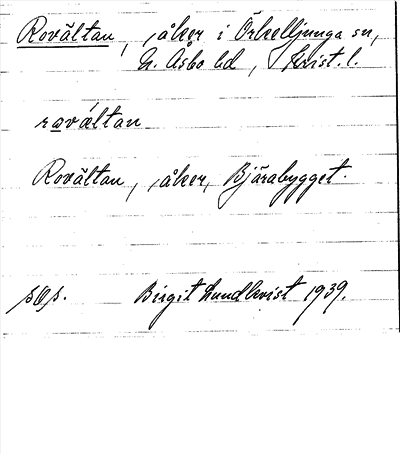 Rovältan, åker i Örkelljunga sn,
N. Åsbo hd, Krist. l.
rováltan
Rovältan, åker, Bjärabygget.
Birgit Lundkvist 1939.